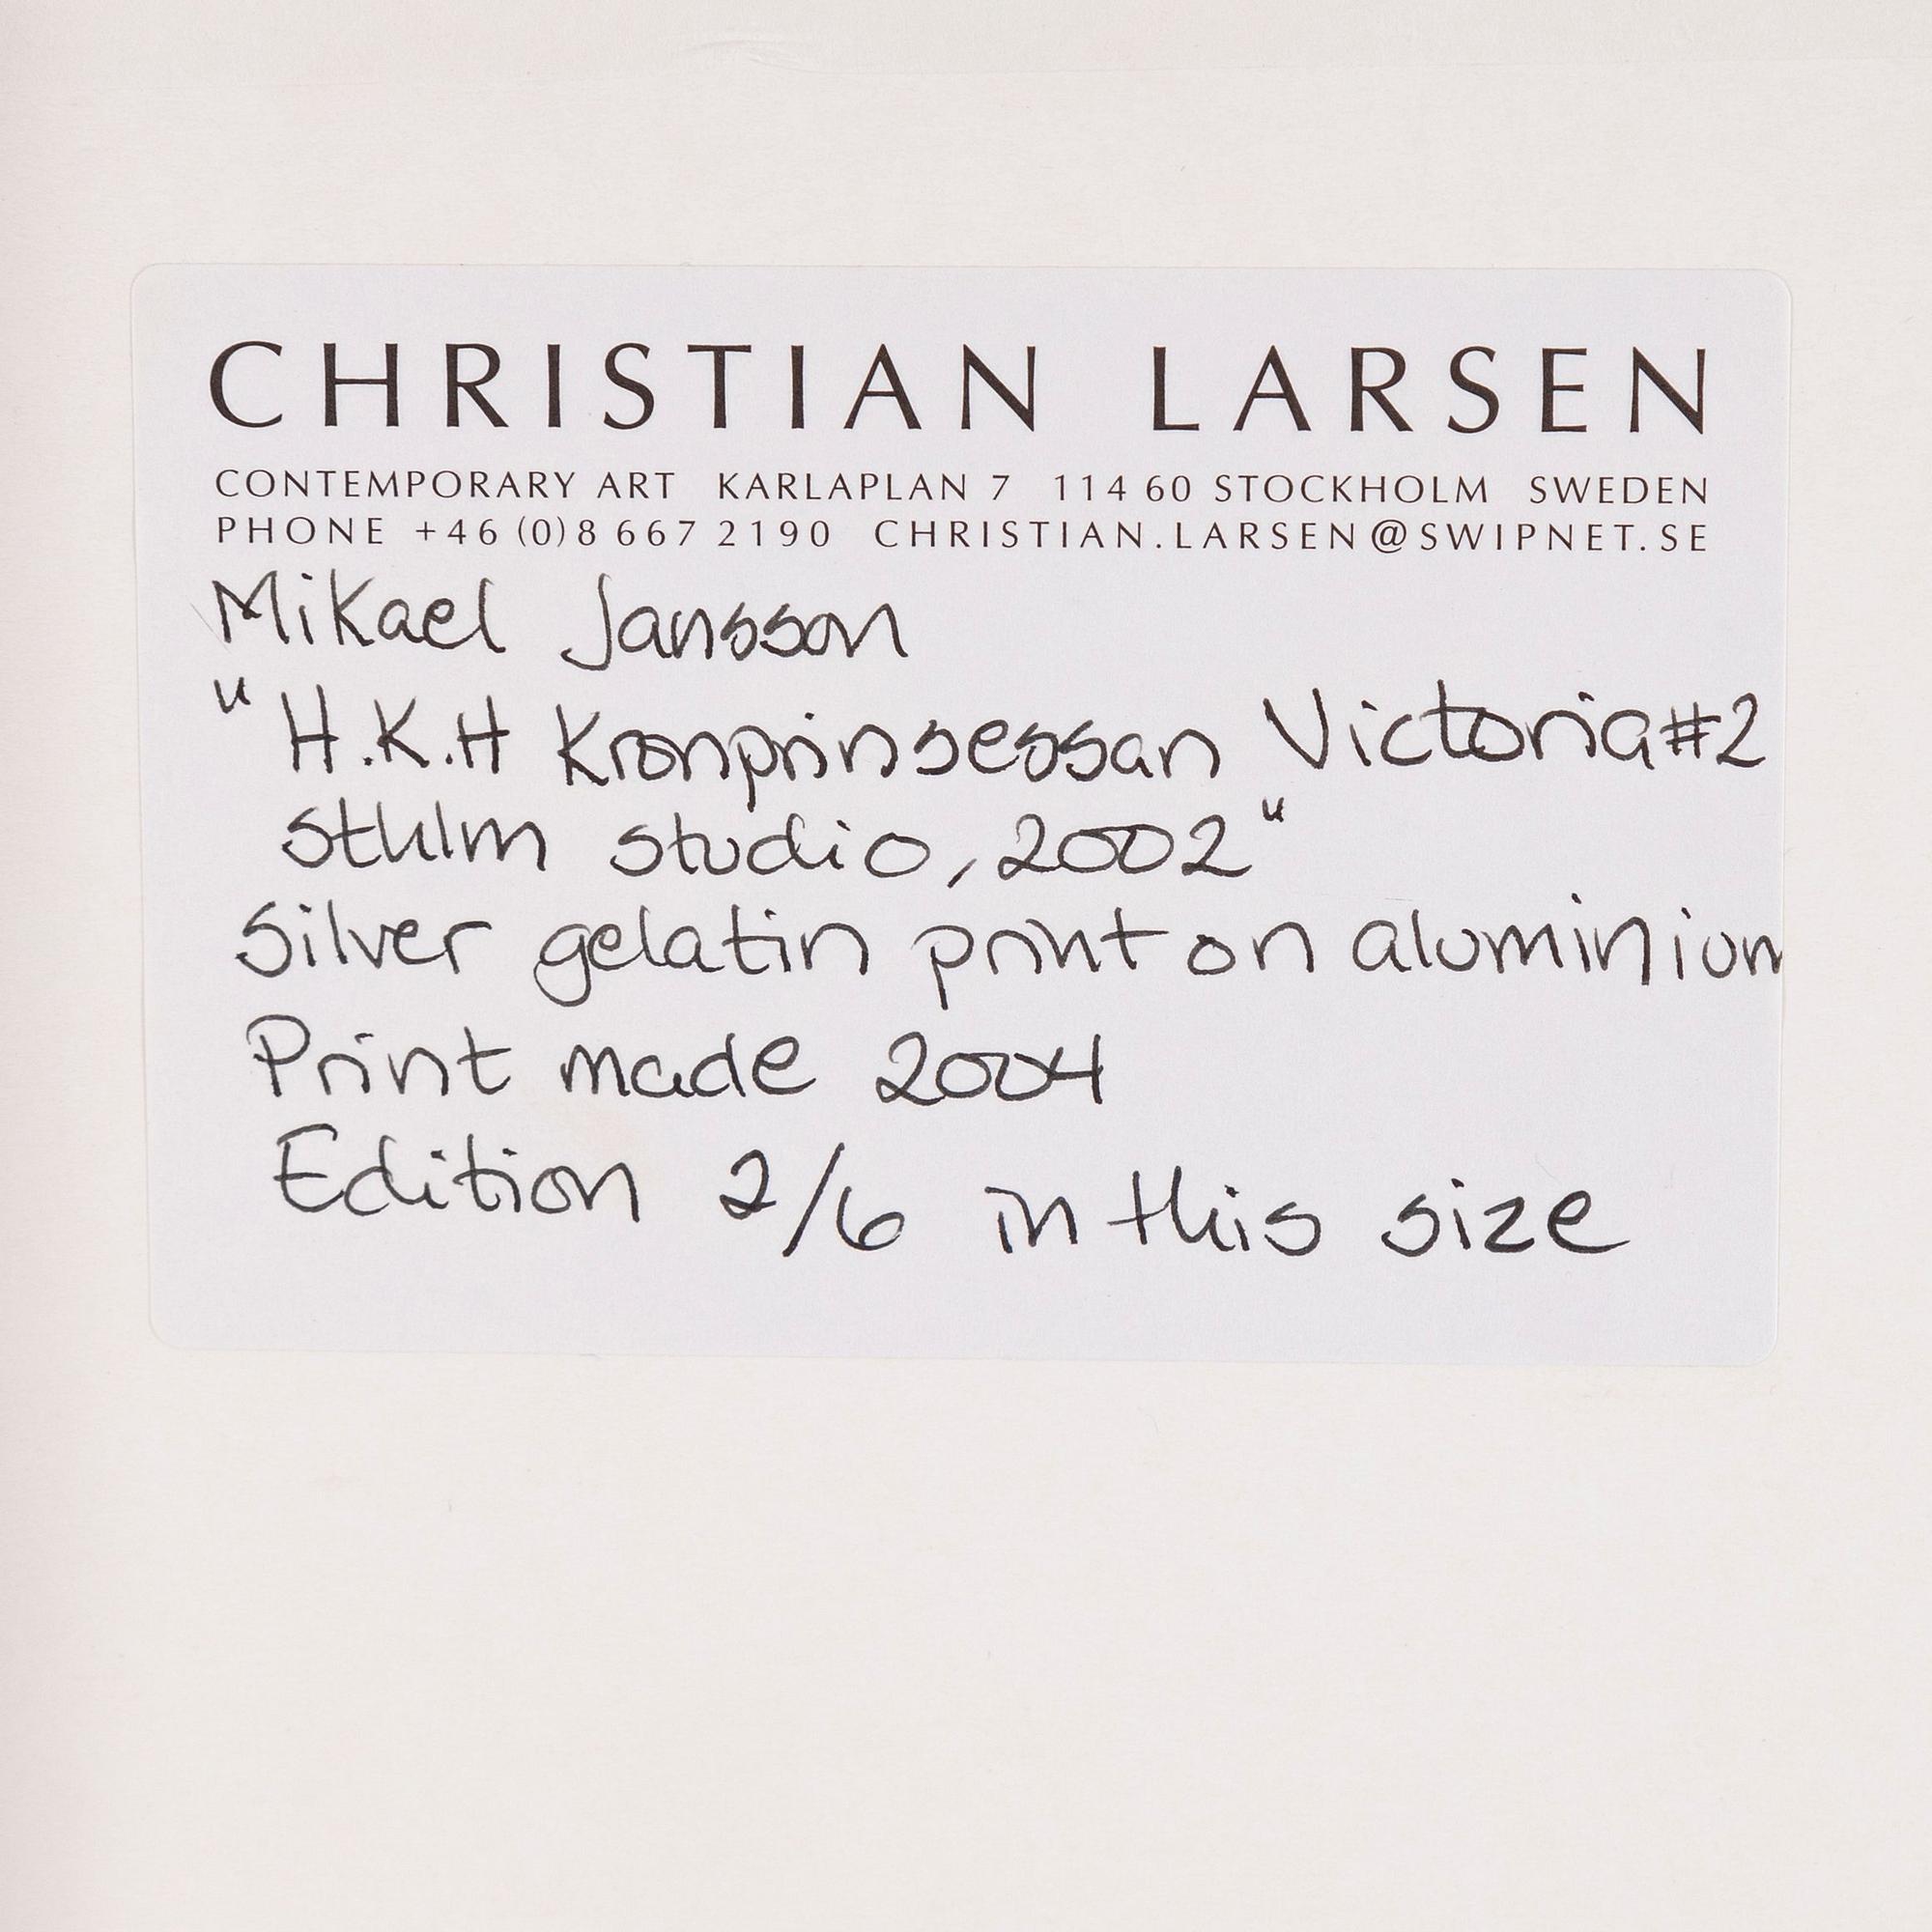 CHRISTIAN LARSEN
CONTEMPORARY ART KARLAPLAN 7 114 60 STOCKHOLM SWEDEN
PHONE +46 (0)8 667 2190 CHRISTIAN.LARSEN@SWIPNET.SE
Mikael Jansson
"H.K.H Kronprinsessan Victoria#2
sthlm studio, 2002"
Silver gelatin print on aluminium
Print made 2004
Edition 2/6 in this size